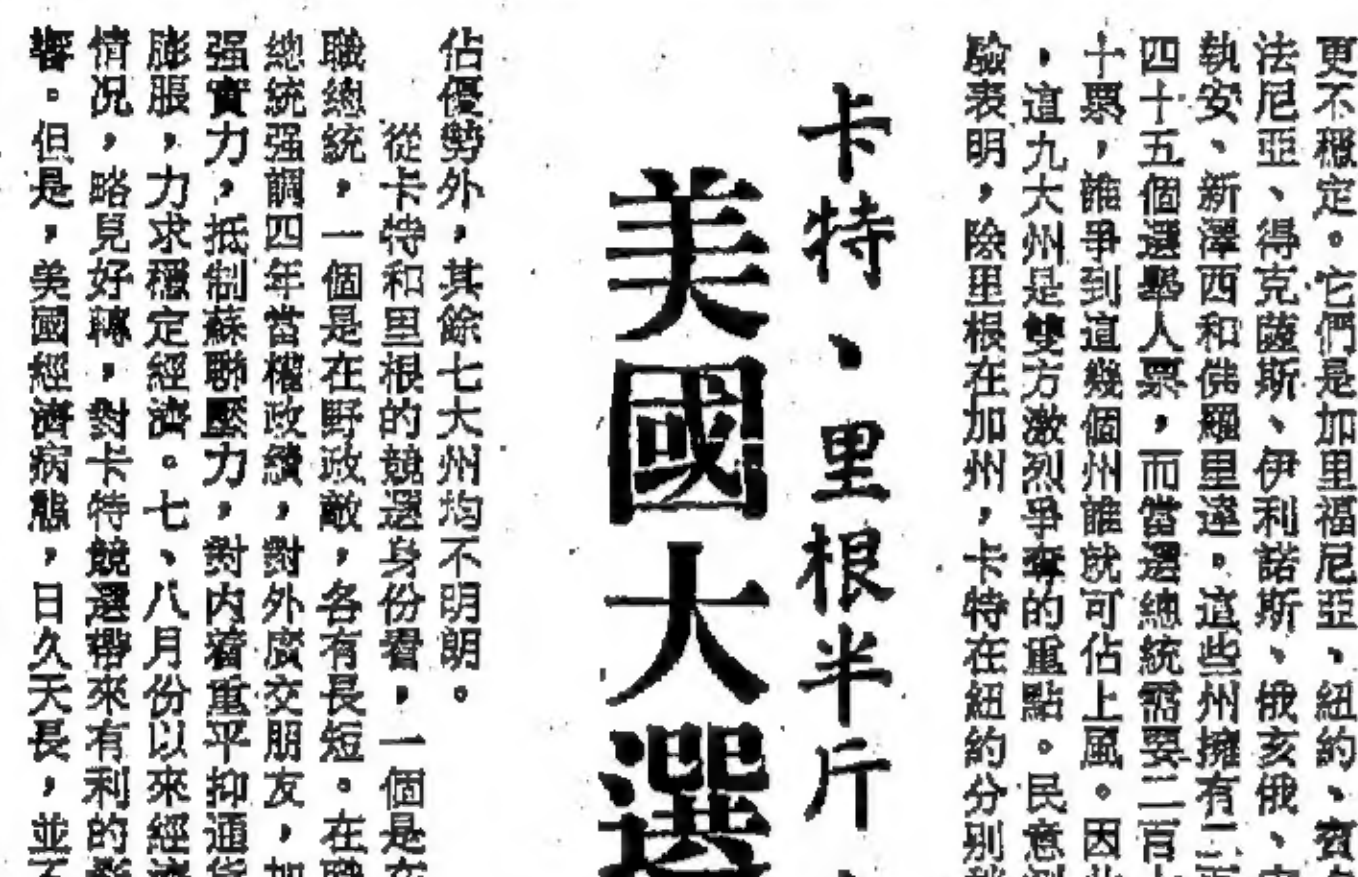 更不穩定。它們是加里福尼亞、紐約、賓
法尼亞、得克薩斯、伊利諾斯、俄亥俄、
執安、新澤西和佛羅里達。這些州擁有二百
四十五個選舉人票,而當選總統需要二百
十票,誰爭到這幾個州誰就可佔上風。因此
,這九大州是雙方激烈爭奪的重點。民意測
驗表明,除里根在加州,卡特在紐約分別
卡特、里根半斤
美國大選
佔優勢外,其餘七大州均不明朗。
從卡特和里根的競選身份看,一個是在
職總統,一個是在野政敵,各有長短。在職
總統强調四年當權政績,對外廣交朋友,加
强實力,抵制蘇聯壓力,對内着重平抑通貨
膨脹,力求穩定經濟。七、八月份以來經濟
情况,略見好轉,對卡特競選帶來有利的影
響。但是,美國經濟病態,日久天長,並不